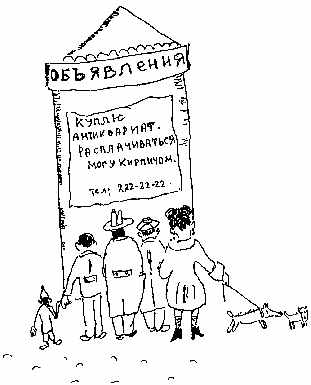 ОБЪЯВЛЕНИЯ
КУПЛЮ
АНТИКВАРИАТ.
РАСПЛАЧИВАТЬСЯ
МОГУ КИРПИЧОМ.
Тел: 222-22-22.